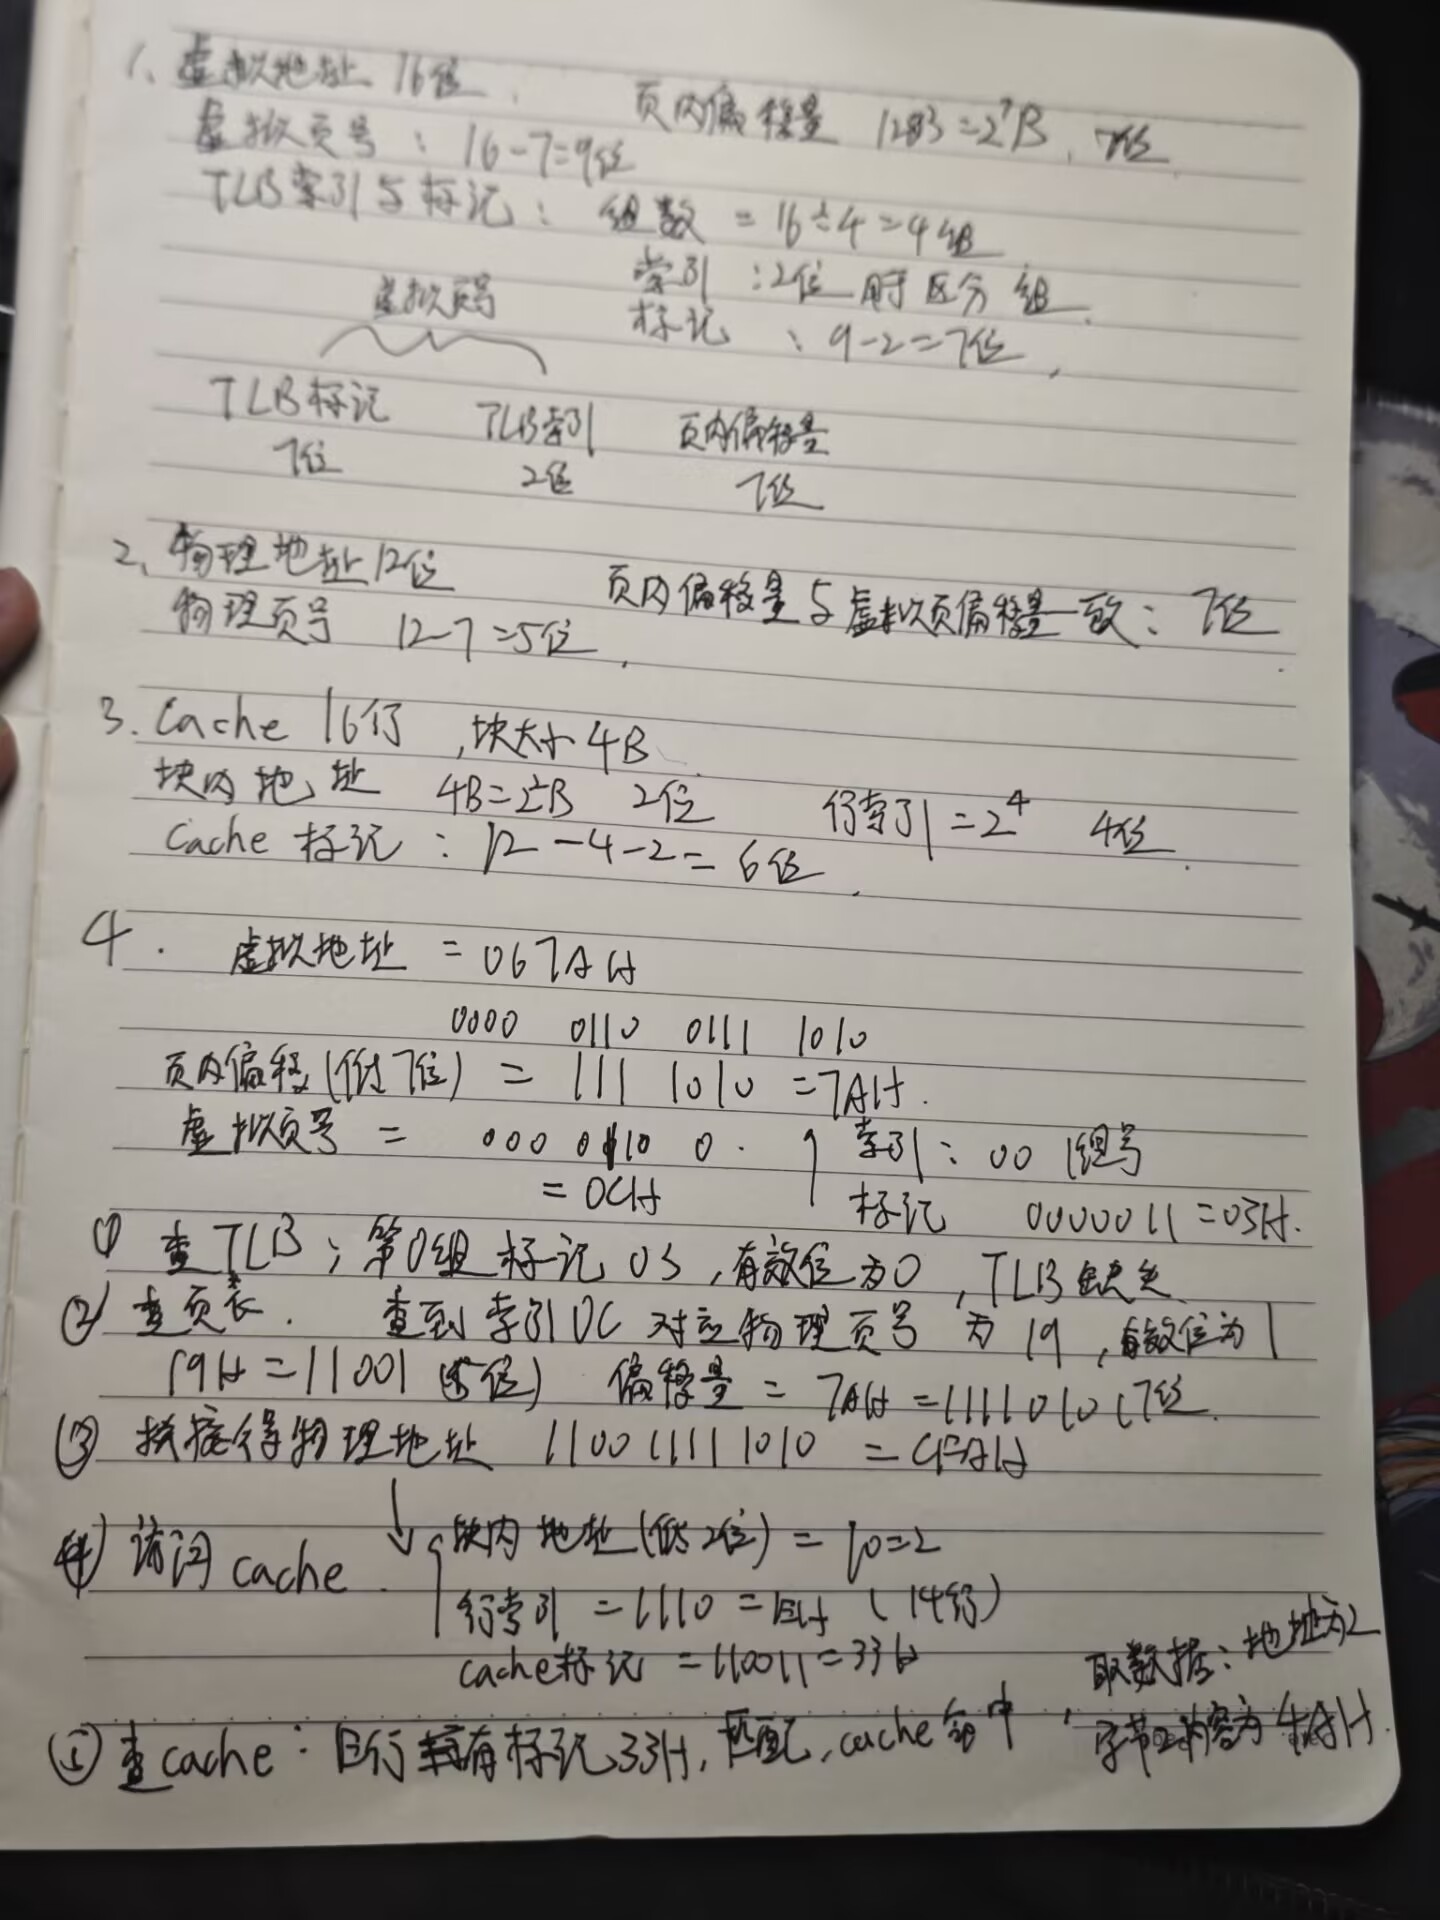 1、虚拟地址 16位, 页内偏移量 128B=2⁷B, 7位
虚拟页号：16-7=9位
TLB索引与标记：组数=16÷4=4组
索引：2位 用于区分组
虚拟页号 标记：9-2=7位,
TLB标记 TLB索引 页内偏移量
7位 2位 7位
2、物理地址12位 页内偏移量与虚拟页偏移量一致：7位
物理页号 12-7=5位,
3. Cache 16行,块大小4B
块内地址 4B=2²B 2位 行索引=2⁴ 4位
Cache标记：12-4-2=6位,
4. 虚拟地址=067AH
0000 0110 0111 1010
页内偏移(低7位)=111 1010=7AH.
虚拟页号= 000 0110 0. { 索引：00 组号
=0CH 标记 0000011=03H.
① 查TLB；第0组标记03,有效位为0,TLB缺失
② 查页表. 查到索引0C对应物理页号为19,有效位为1
19H=11001(5位) 偏移量=7AH=1111010(7位
③ 拼接得物理地址 110011111010=CFAH
④ 访问cache. ↓ { 块内地址(低2位)=10=2
行索引=1110=EH(14行)
cache标记=110011=33H 取数据：地址为2
⑤ 查cache：E行有标记33H,匹配,cache命中, 字节2内容为4AH.